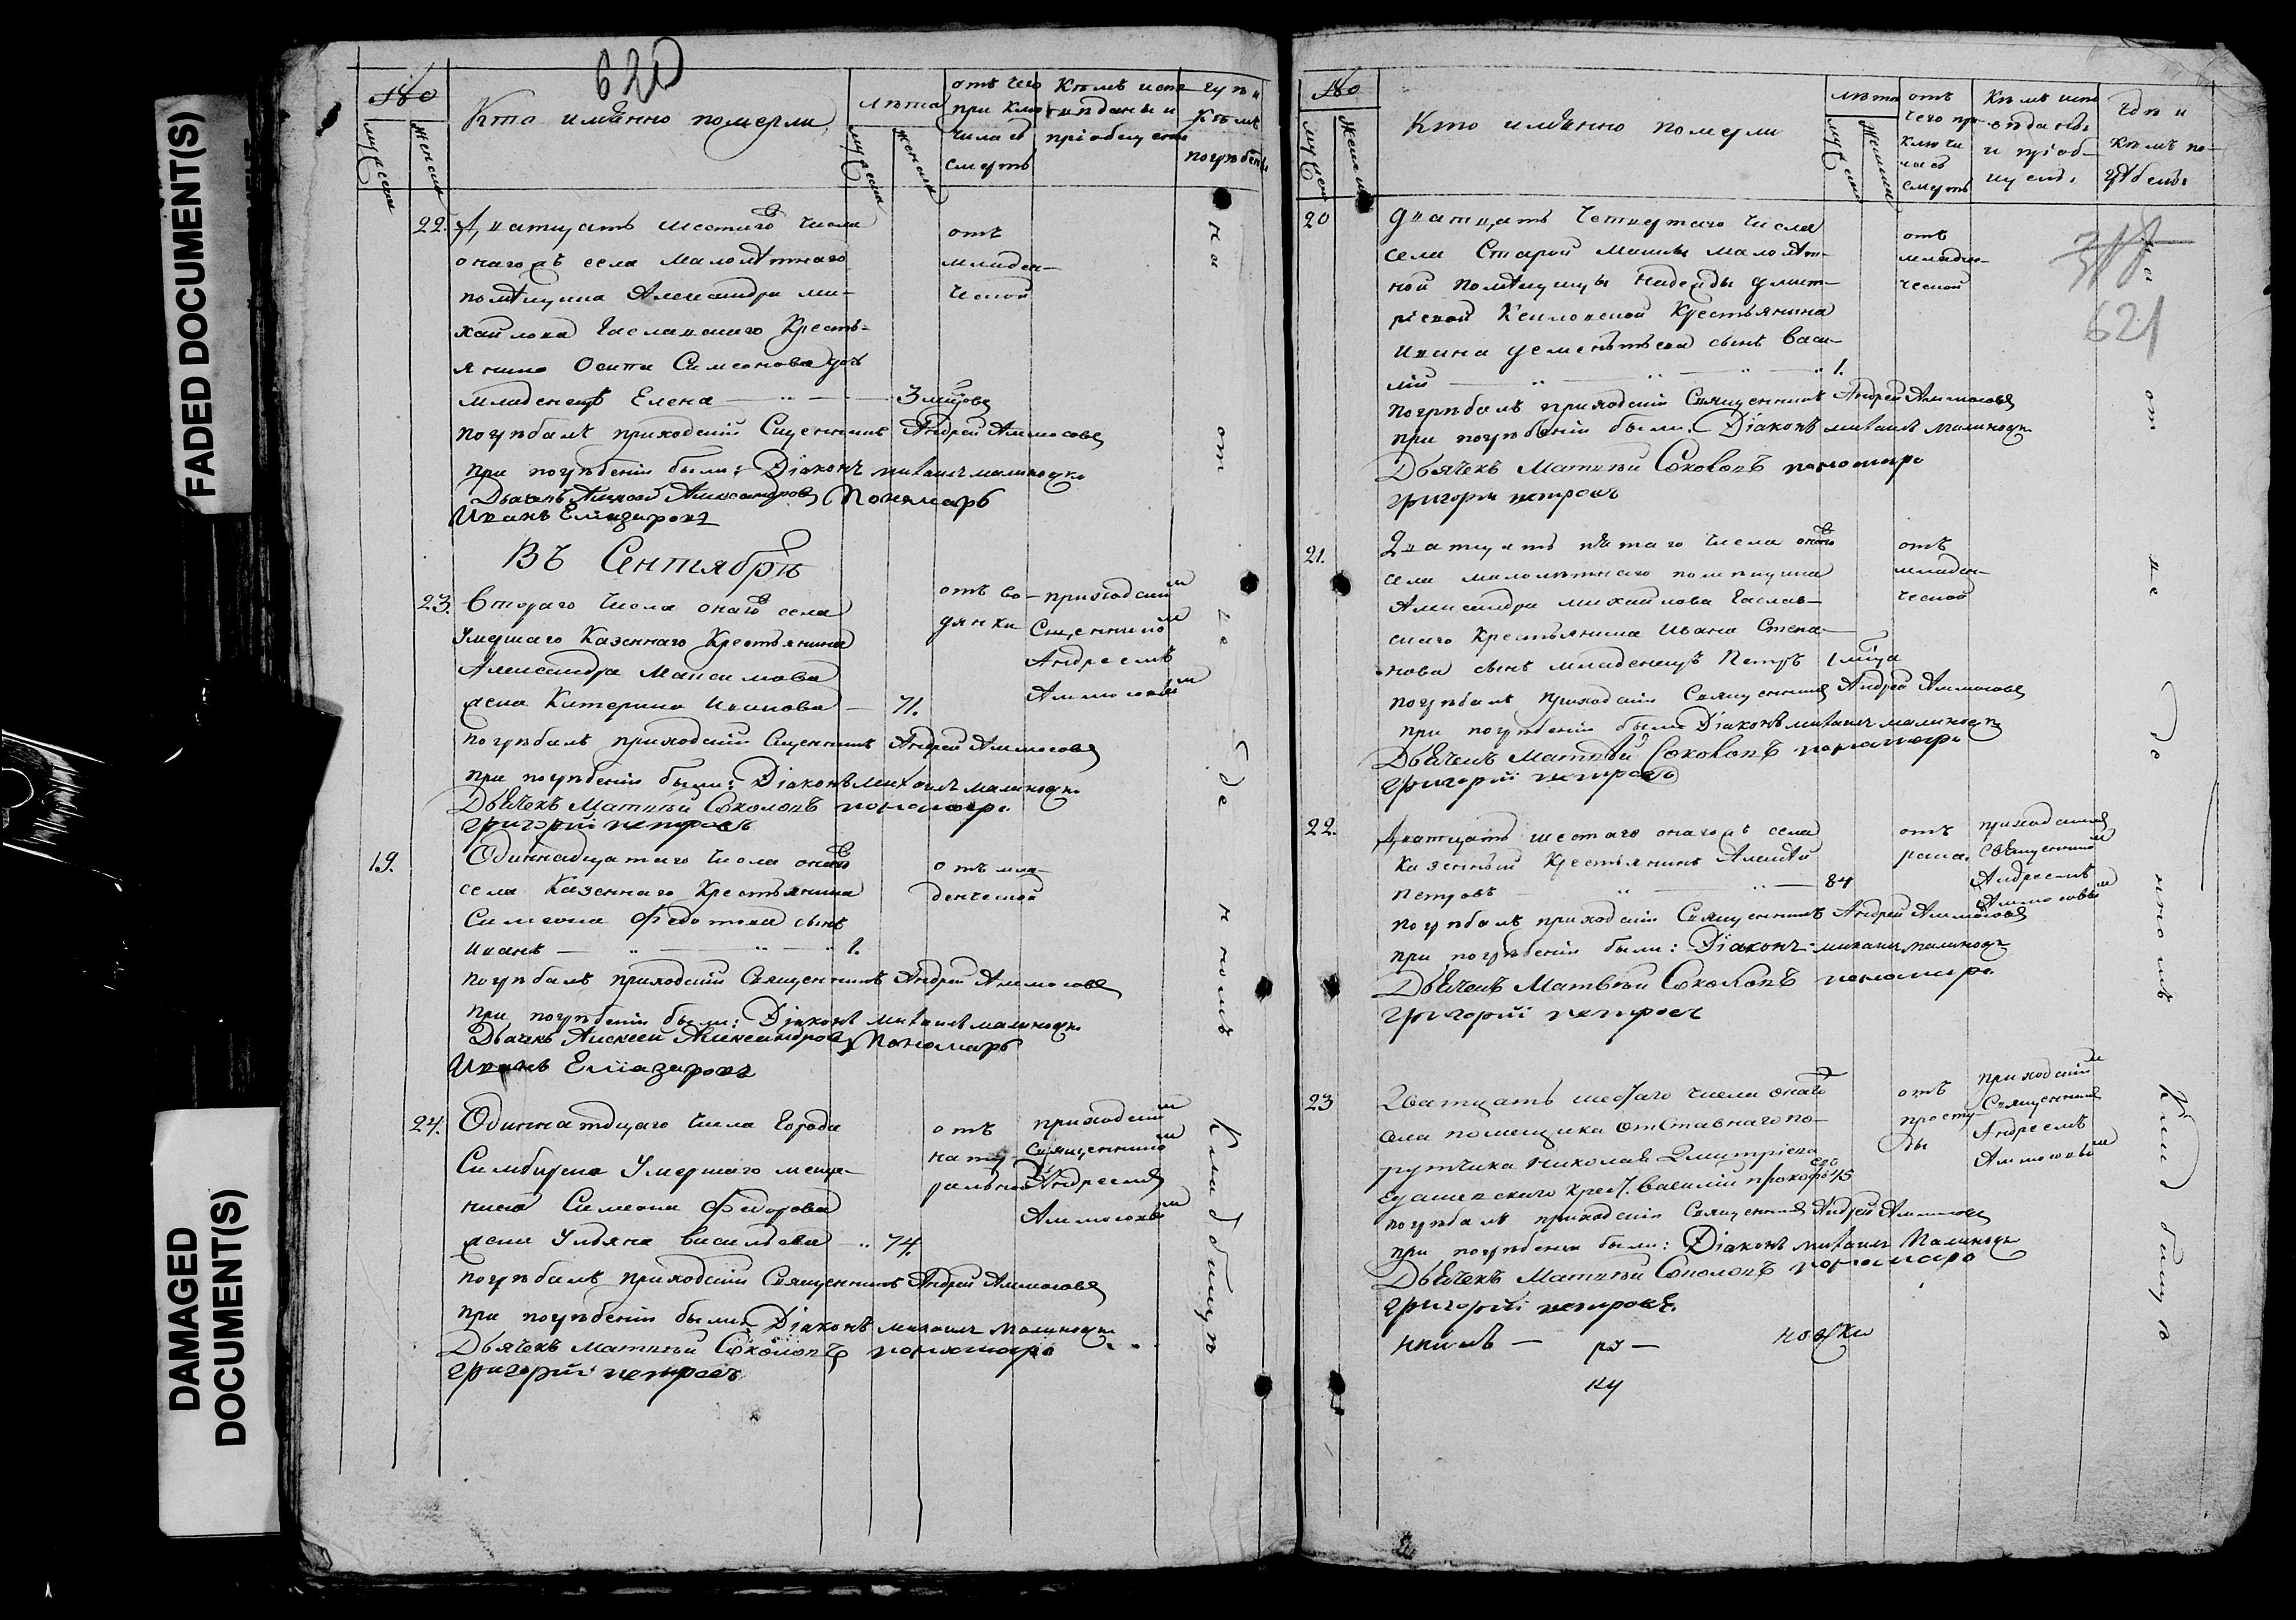 FADED DOCUMENT(S)
DAMAGED
DOCUMENT(S)
620
№
Кто имянно померли
лѣта
отъ чего
приклю
чилась
смерть
Кѣмъ испо
вѣданы и
пріобщены
гдѣ и
кѣмъ
погребены
мужеска
женска
мужеска
женска
22.
Дватцать шестаго числа
онагожъ села малолѣтнаго
помѣщика Александра ми-
хайлова Крестъ-
янина Осипа Симеонова дочь
младенецъ Елена 3 мцовъ
отъ
младен-
ческой
погребалъ приходскій Сщенникъ Андрей Аммосовъ
при погребеніи были: Діаконъ михаилъ малиноск
Дьячекъ Алексей Александровъ Пономарь
Иванъ Елиазаровъ
Въ Сентябрѣ
23.
Втораго числа онагожъ села
Умершаго Казеннаго Крестьянина
Александра Максимова
жена Катерина Иванова — 71.
отъ во-
дянки
приходским
Сщенником
Андреемъ
Аммосовым
погребалъ приходскій Сщенникъ Андрей Аммосовъ
при погребеніи были: Діаконъ михаилъ малиноск
Дьячекъ Матвѣй Соколовъ пономарь
григорій петровъ
19.
Одиннадцатаго числа онагожъ
села Казеннаго Крестьянина
Симеона Федотова сынъ
Иванъ — 1.
отъ мла-
денческой
погребалъ приходскій Священникъ Андрей Аммосовъ
при погребеніи были: Діаконъ михаилъ малиноск
Дьячекъ Алексей Александровъ Пономарь
Иванъ Елиазаровъ
24.
Одиннатцаго числа Города
Симбирска Умершаго меща-
нина Симеона Федорова
жена Ульяна васильева 74.
отъ
нату-
ральной
приходским
Священником
Андреемъ
Аммосовым
погребалъ приходскій Священникъ Андрей Аммосовъ
при погребеніи были: Діаконъ михаилъ малиноск
Дьячекъ матвѣй Соколовъ пономарь
григорій петровъ
на отведенномъ Кладбищѣ
№
Кто имянно померли
лѣта
отъ
чего при
ключи
лась
смерть
Кѣмъ испо
вѣданы
и пріоб-
щены
гдѣ и
кѣмъ по-
гребены
мужеска
женска
мужеска
женска
621
20
Дватцать Четвертаго числа
села Старой малолѣт-
ной помѣщицы Надежды дмит-
ріевой Крестьянина
Ивана дементьева сынъ Васи-
лій — 1.
отъ
младен-
ческой
погребалъ приходскій Священникъ Андрей Аммосовъ
при погребеніи были: Діаконъ михаилъ малиноск
Дьячекъ Матвѣй Соколовъ пономарь
григорій петровъ
21.
Дватцать пятаго числа онагожъ
села малолѣтнаго помѣщика
Александра михайлова
Крестьянина Ивана Степа-
нова сынъ младенецъ Петръ 1 мца
отъ
младен-
ческой
погребалъ приходскій Священникъ Андрей Аммосовъ
при погребеніи были Діаконъ михаилъ малиноск
Дьячекъ Матвѣй Соколовъ пономарь
григорій петровъ
22.
Дватцать шестаго онагожъ села
Казенный Крестьянинъ Алексѣй
Петровъ — 84
отъ
приходским
Священником
Андреемъ
Аммосовым
погребалъ приходскій Священникъ Андрей Аммосовъ
при погребеніи были: Діаконъ михаилъ малиноск
Дьячекъ Матвѣй Соколовъ пономарь
григорій петровъ
23
Дватцать шестаго числа онагожъ
села помещика отставнаго по-
рутчика николая Дмитріева
крест. василий прокофьевъ 45
отъ
просту-
ды
приходским
Священником
Андреемъ
Аммосовым
погребалъ приходскій Священникъ Андрей Аммосовъ
при погребеніи были: Діаконъ михаилъ Малиноск
Дьячекъ Матвѣй Соколовъ пономарь
григорій петровъ.
на отведенномъ Кладбищѣ